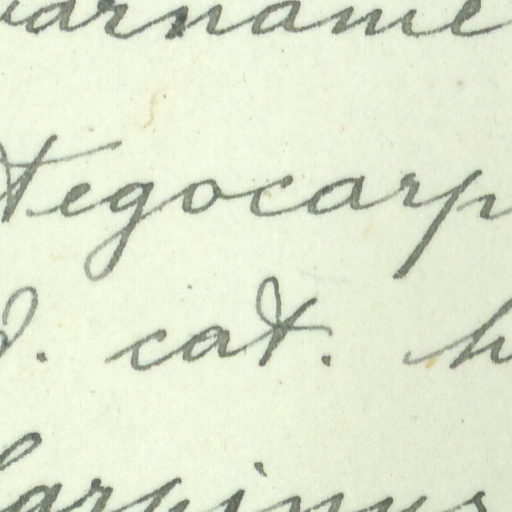 varname
tegocarp
d. cat. h
Carpinus